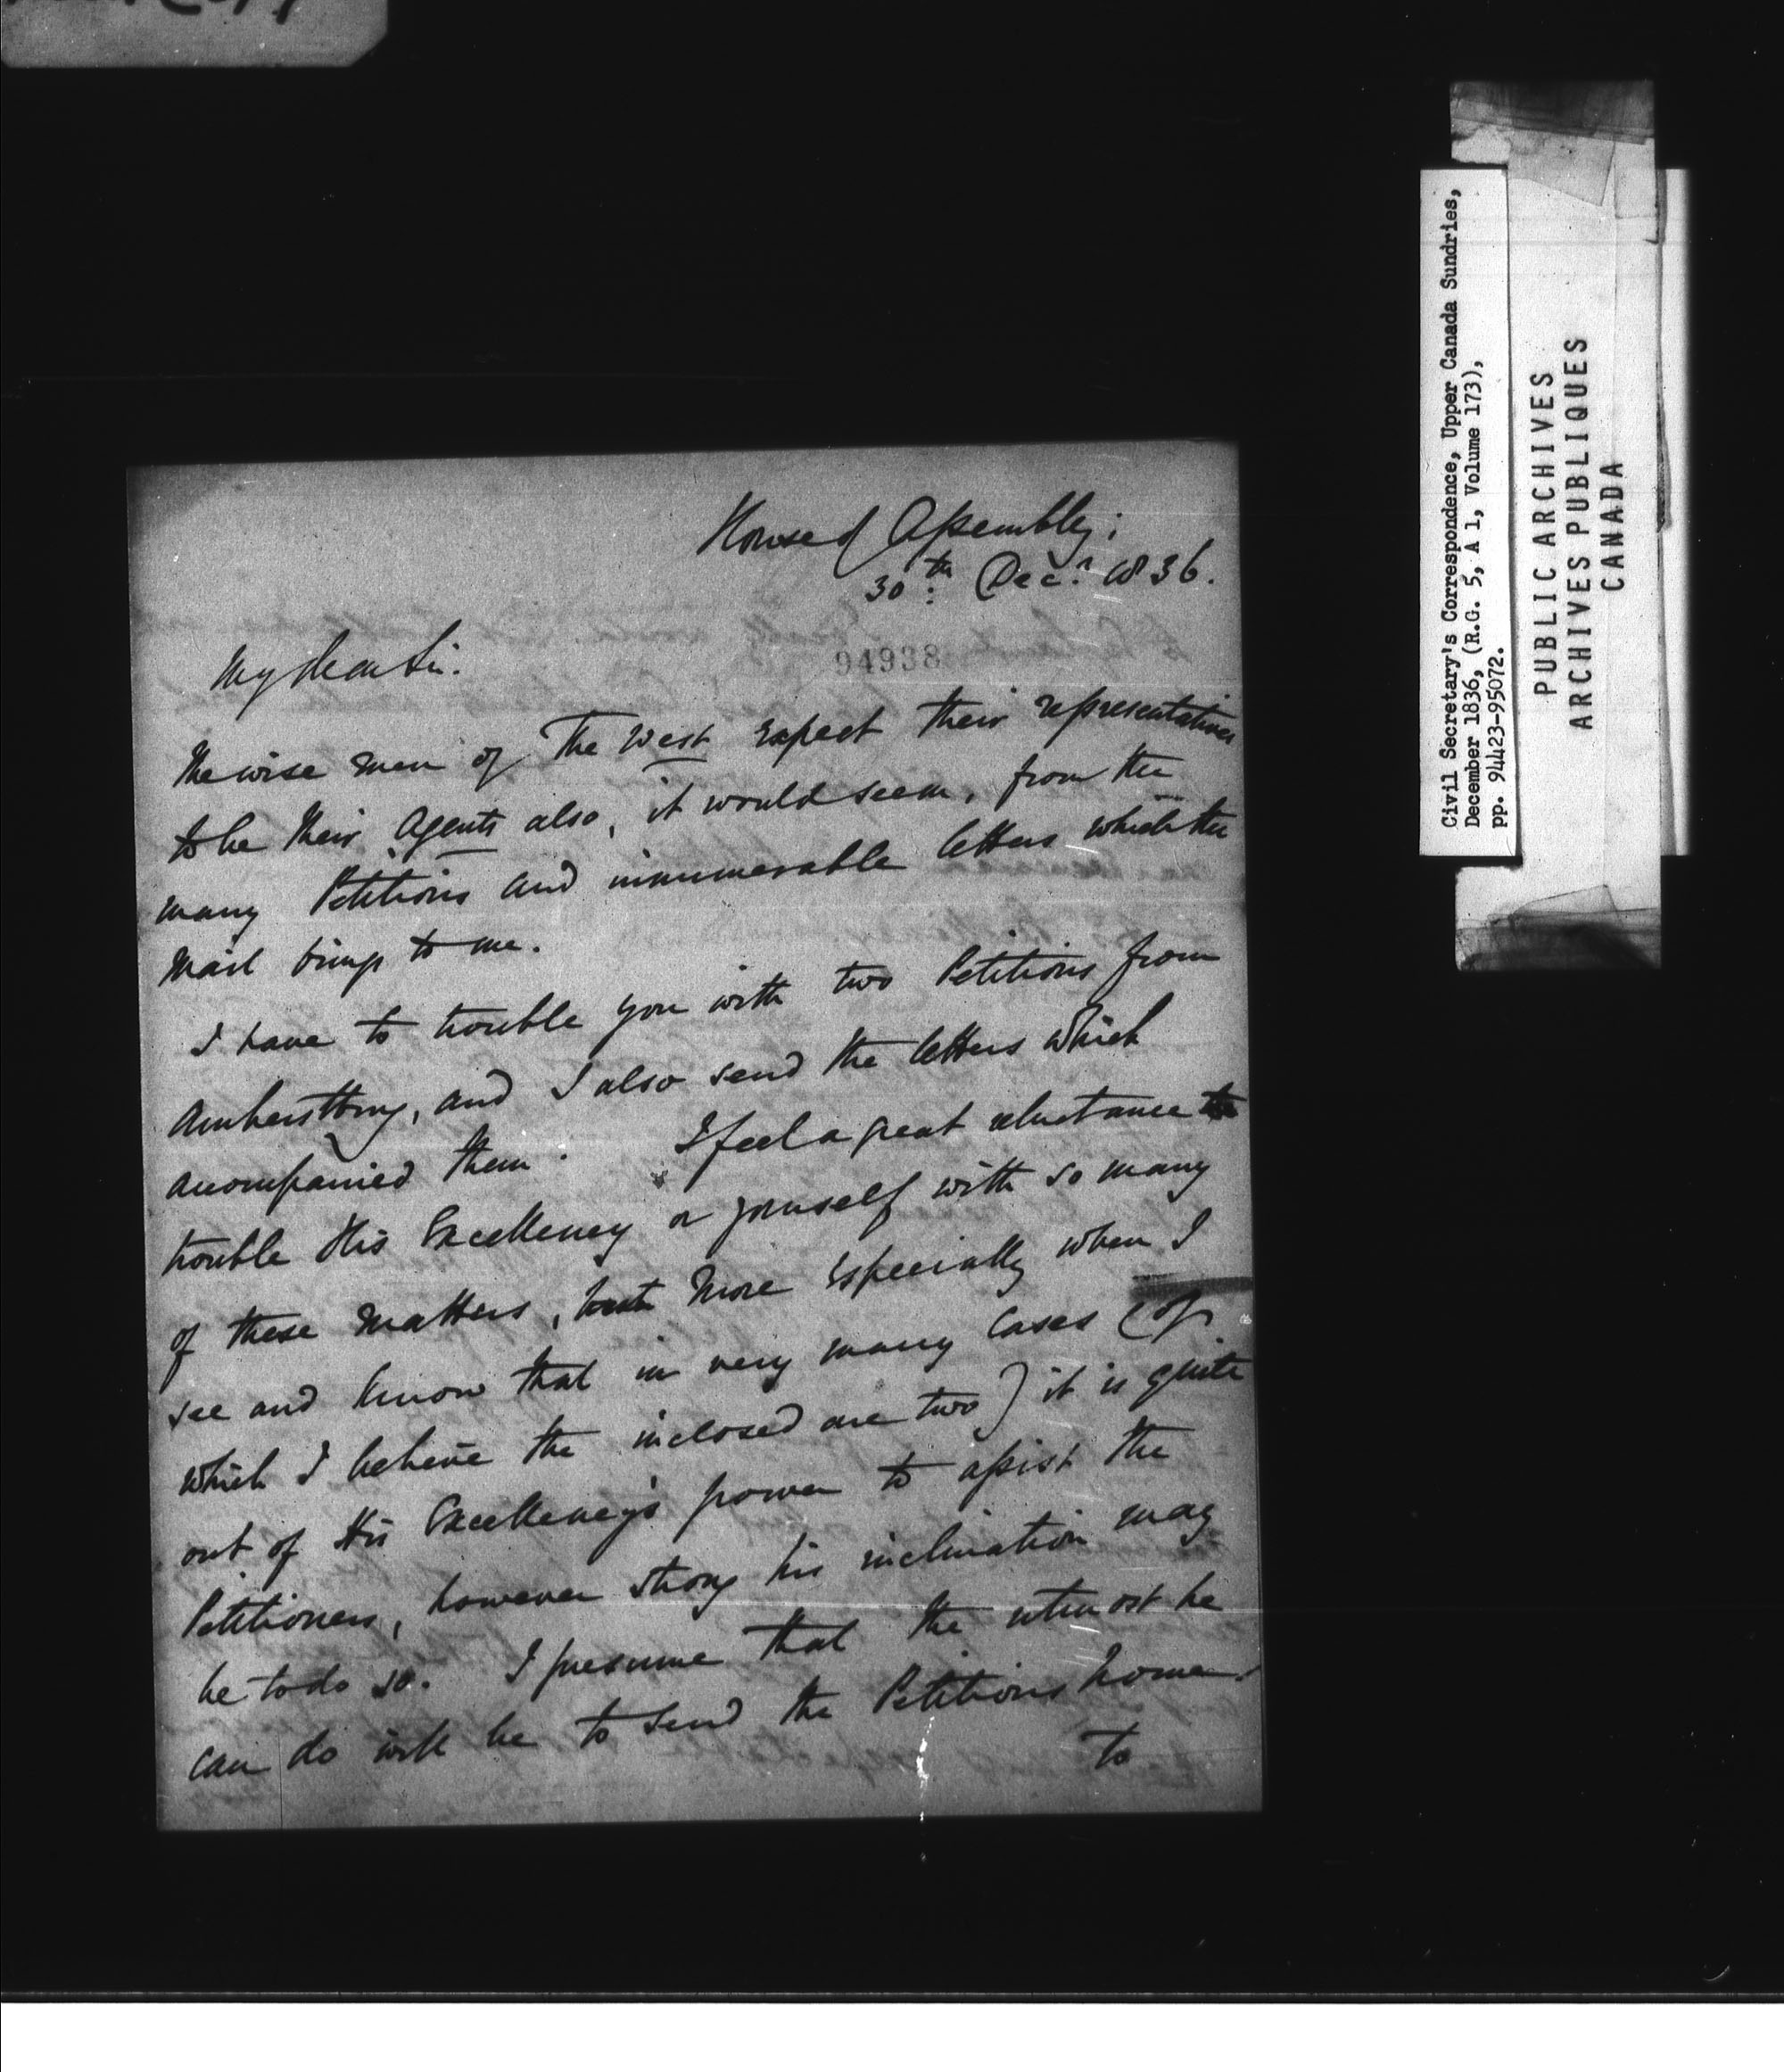 House of Assembly;
30th Decr. 1836.
94938
My dear Sir.
The wise men of The West expect their representatives
to be their Agents also, it would seem, from the
many Petitions and innumerable letters which the
Mail brings to me.
I have to trouble you with two Petitions from
Amherstburg, and I also send the letters which
accompanied them. I feel a great reluctance to
trouble His Excellency or yourself with so many
of these matters, but more especially when I
see and know that in very many cases (of
which I believe the inclosed are two) it is quite
out of His Excellency's power to assist the
Petitioners, however strong his inclination may
be to do so. I presume that the utmost he
can do will be to send the Petitions home.
to
Civil Secretary's Correspondence, Upper Canada Sundries,
December 1836, (R.G. 5, A 1, Volume 173),
pp. 94423-95072.
PUBLIC ARCHIVES
ARCHIVES PUBLIQUES
CANADA